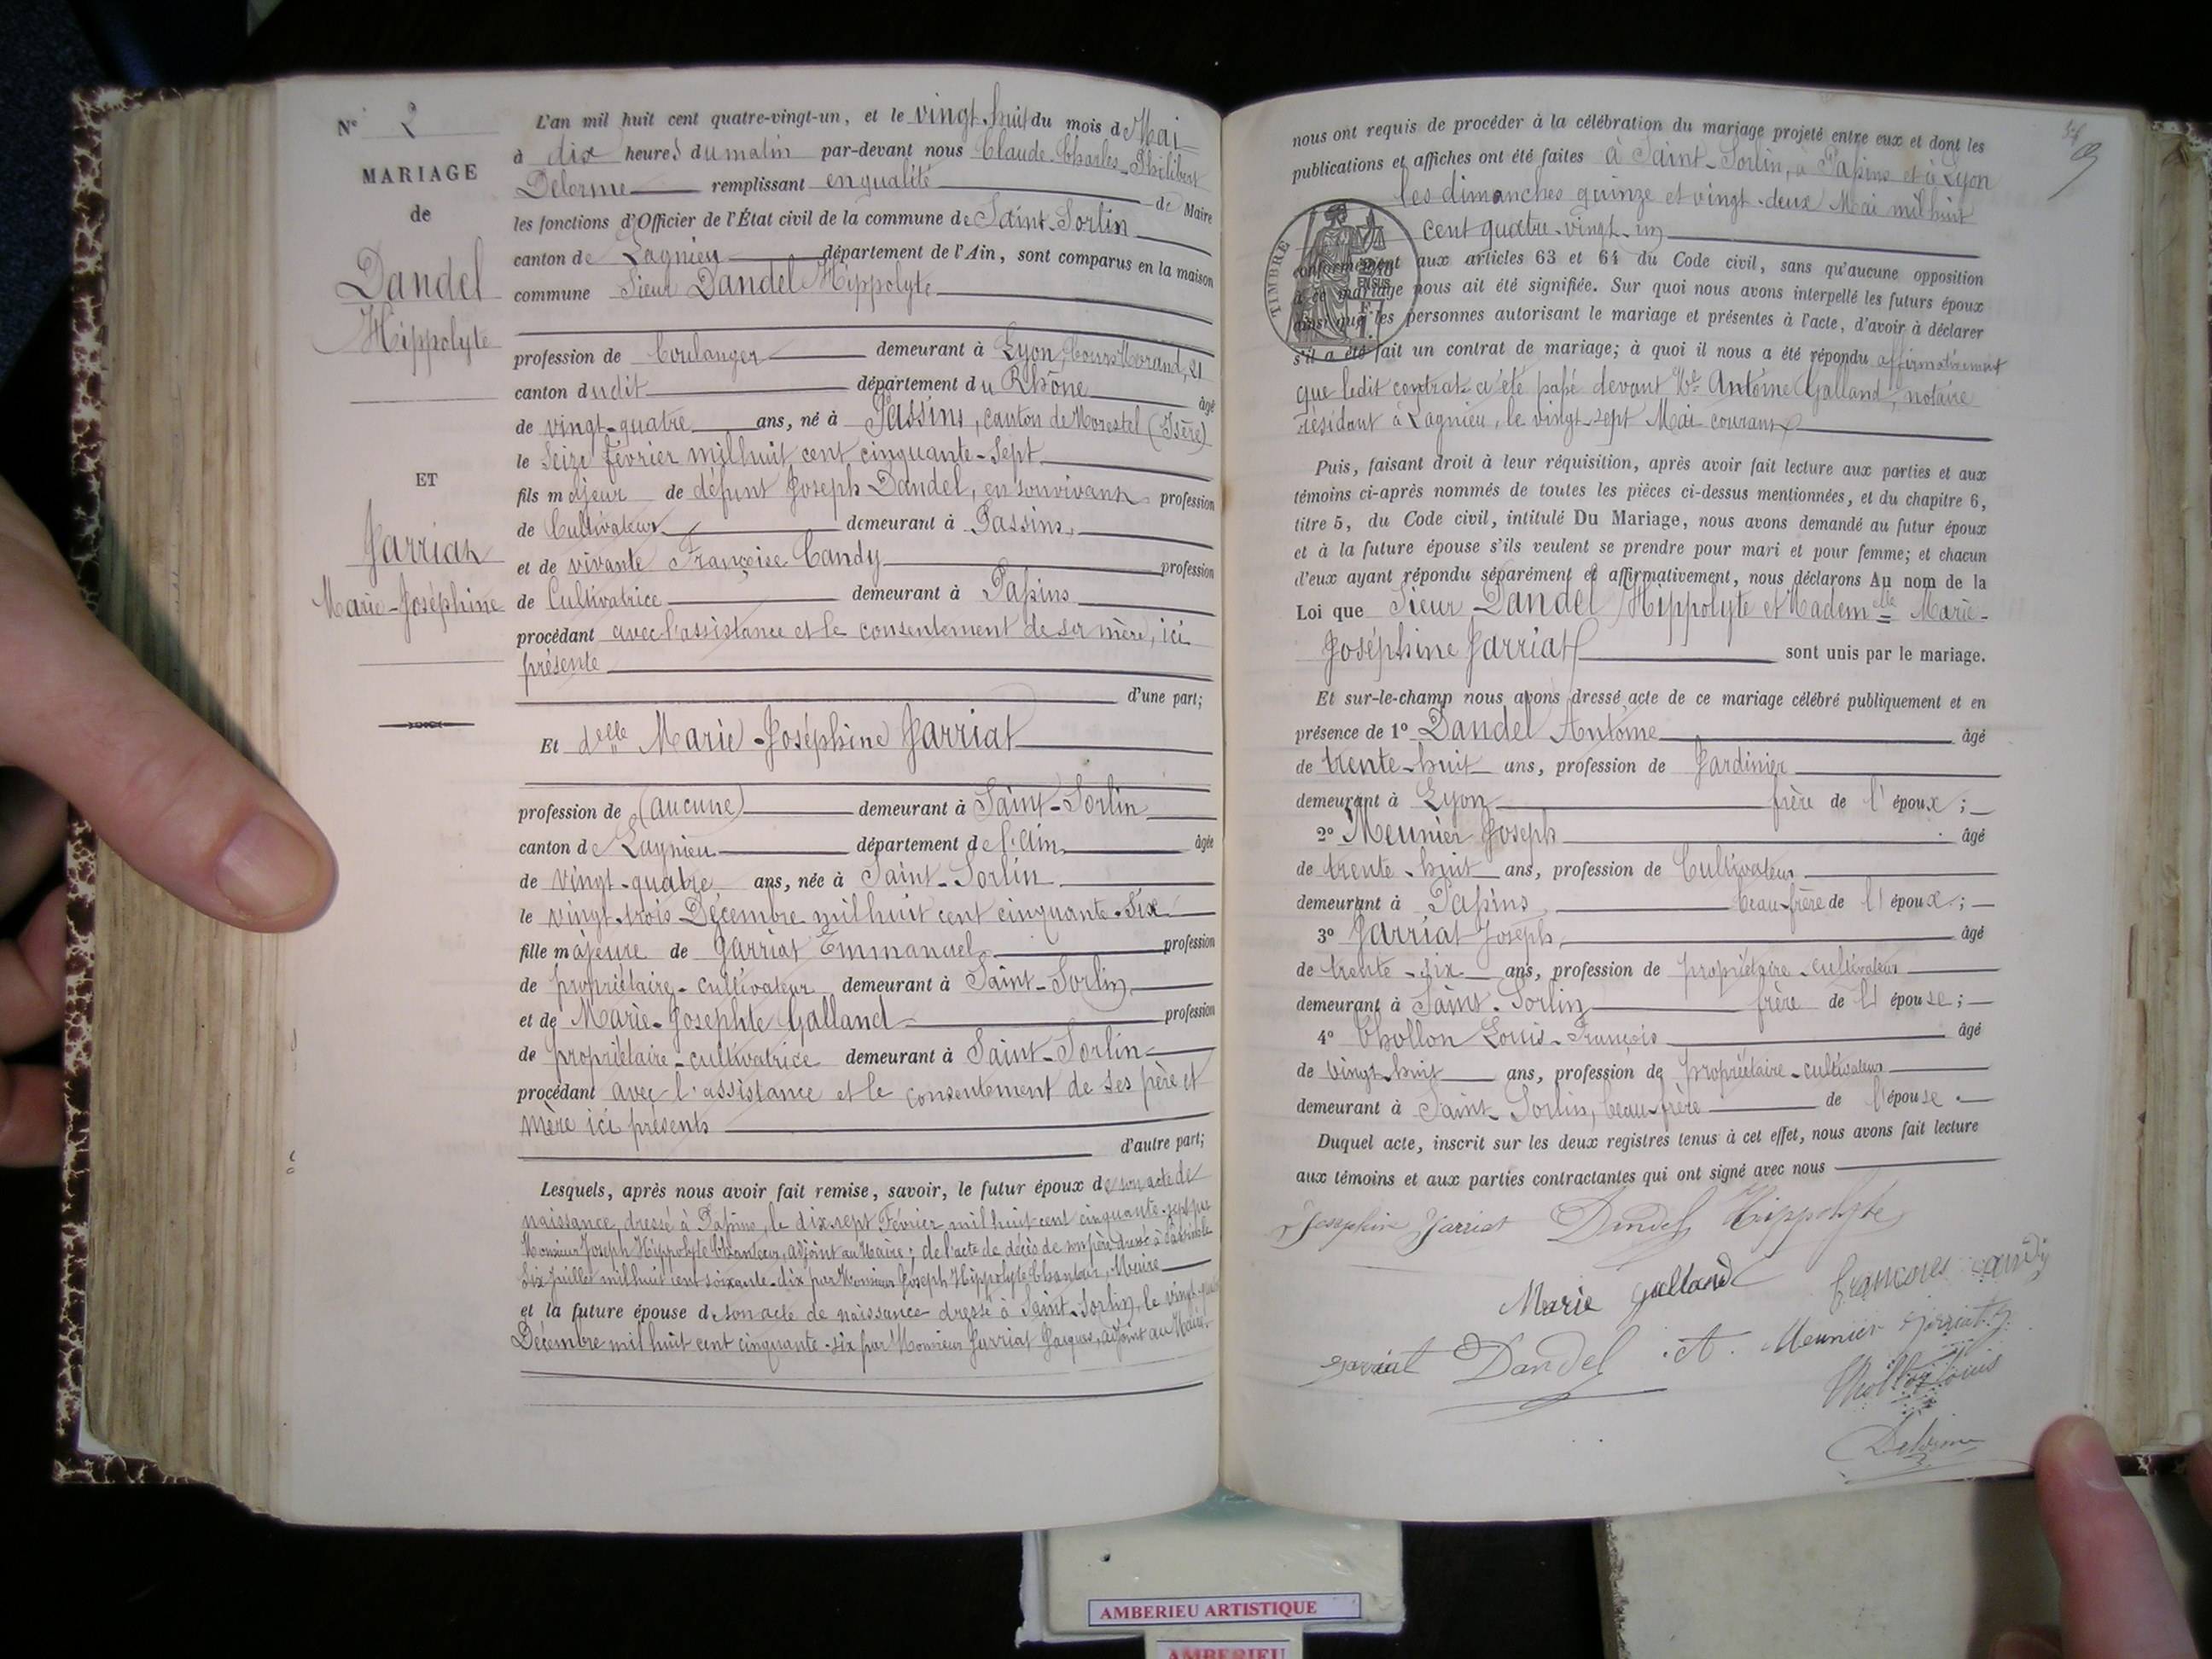 N° 2
MARIAGE
de
Dandel
Hippolyte
ET
Jarriat
Marie-Joséphine
L'an mil huit cent quatre-vingt-un, et le vingt-huit du mois de Mai
à dix heures du matin par-devant nous Claude-Charles-Philibert
Delorme remplissant en qualité de Maire
les fonctions d'Officier de l'État civil de la commune de Saint-Sorlin
canton de Lagnieu département de l'Ain, sont comparus en la maison
commune Sieur Dandel Hippolyte
profession de boulanger demeurant à Lyon, Cours Morand, 21
canton dudit département du Rhône âgé
de vingt-quatre ans, né à Passins, canton de Morestel (Isère)
le Seize février mil huit cent cinquante-sept
fils majeur de défunt Joseph Dandel, en son vivant profession
de Cultivateur demeurant à Passins,
et de vivante Françoise Candy profession
de Cultivatrice demeurant à Passins
procédant avec l'assistance et le consentement de sa mère, ici
présente
d'une part;
Et delle Marie-Joséphine Jarriat
profession de (aucune) demeurant à Saint-Sorlin
canton de Lagnieu département de l'Ain, âgée
de vingt-quatre ans, née à Saint-Sorlin
le vingt-trois Décembre mil huit cent cinquante-six
fille majeure de Jarriat Emmanuel profession
de propriétaire-cultivateur demeurant à Saint-Sorlin
et de Marie-Josephte Galland profession
de propriétaire-cultivatrice demeurant à Saint-Sorlin
procédant avec l'assistance et le consentement de ses père et
mère ici présents
d'autre part;
Lesquels, après nous avoir fait remise, savoir, le futur époux de son acte de
naissance, dressé à Passins, le dix-sept Février mil huit cent cinquante-sept par
Monsieur Joseph Hippolyte Chanteur, adjoint au Maire; de l'acte de décès de son père dressé à Passins le
Six Juillet mil huit cent soixante-dix par Monsieur Joseph Hippolyte Chanteur, Maire
et la future épouse de son acte de naissance dressé à Saint-Sorlin, le vingt-
Décembre mil huit cent cinquante-six par Monsieur Jarriat Jacques, adjoint au Maire.
nous ont requis de procéder à la célébration du mariage projeté entre eux et dont les
publications et affiches ont été faites à Saint-Sorlin, à Passins et à Lyon
les dimanches quinze et vingt-deux Mai mil huit
cent quatre-vingt-un
TIMBRE
conformément aux articles 63 et 64 du Code civil, sans qu'aucune opposition
à ce mariage nous ait été signifiée. Sur quoi nous avons interpellé les futurs époux
ainsi que les personnes autorisant le mariage et présentes à l'acte, d'avoir à déclarer
s'il a été fait un contrat de mariage; à quoi il nous a été répondu affirmativement
que ledit contrat a été passé devant Me Antoine Galland, notaire
résidant à Lagnieu, le vingt-sept Mai courant
Puis, faisant droit à leur réquisition, après avoir fait lecture aux parties et aux
témoins ci-après nommés de toutes les pièces ci-dessus mentionnées, et du chapitre 6,
titre 5, du Code civil, intitulé Du Mariage, nous avons demandé au futur époux
et à la future épouse s'ils veulent se prendre pour mari et pour femme; et chacun
d'eux ayant répondu séparément et affirmativement, nous déclarons Au nom de la
Loi que Sieur Dandel Hippolyte et Mademelle Marie-
Joséphine Jarriat sont unis par le mariage.
Et sur-le-champ nous avons dressé acte de ce mariage célébré publiquement et en
présence de 1° Dandel Antoine âgé
de trente-huit ans, profession de Jardinier
demeurant à Lyon frère de l'époux;
2° Meunier Joseph âgé
de trente-huit ans, profession de Cultivateur
demeurant à Passins, beau-frère de l'époux;
3° Jarriat Joseph, âgé
de trente-six ans, profession de propriétaire-cultivateur
demeurant à Saint-Sorlin frère de l'épouse;
4° Chollon Louis-François âgé
de vingt-huit ans, profession de propriétaire-cultivateur
demeurant à Saint-Sorlin, beau-frère de l'épouse.
Duquel acte, inscrit sur les deux registres tenus à cet effet, nous avons fait lecture
aux témoins et aux parties contractantes qui ont signé avec nous
Josephine Jarriat Dandel Hippolyte
Marie Galland
Jarriat Dandel A. Meunier Jarriat J.
Chollon Louis
Delorme
AMBERIEU ARTISTIQUE
AMBERIEU